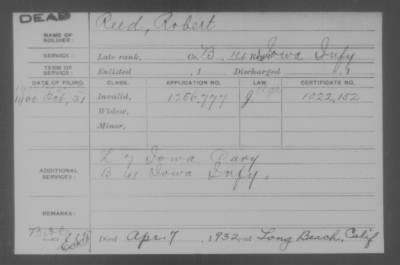 DEAD
NAME OF SOLDIER: Reed, Robert
SERVICE: Late rank, Co. B, 41 Reg't Iowa Infy
TERM OF SERVICE: Enlisted , 1 Discharged , 1
DATE OF FILING. CLASS. APPLICATION NO. LAW. CERTIFICATE NO.
1900 31 Invalid, 1256,777 1022,152
Widow,
Minor,
ADDITIONAL SERVICES: L 7 Iowa Cavy
B 41 Iowa Infy.
REMARKS:
Died Apr. 7, 1932, at Long Beach, Calif